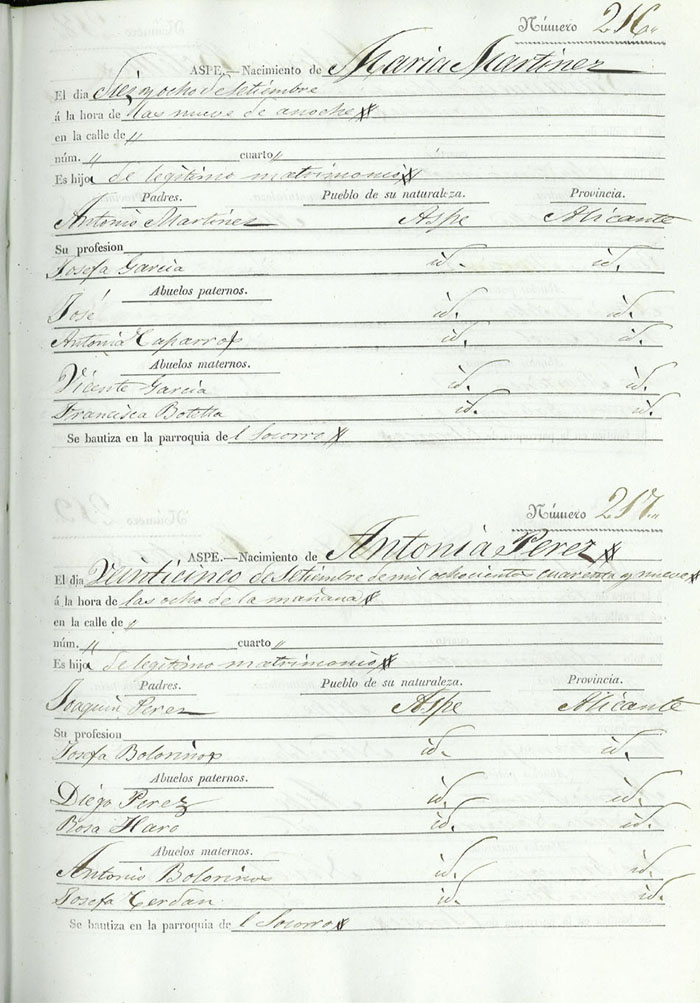 Número 216
ASPE.—Nacimiento de Maria Martinez
El dia diez y ocho de setiembre
á la hora de las nueve de anoche
en la calle de "
núm. " cuarto "
Es hija de legitimo matrimonio
Padres. Pueblo de su naturaleza. Provincia.
Antonio Martinez Aspe Alicante
Su profesion
Josefa Garcia id. id.
Abuelos paternos.
José id. id.
Antonia Caparros id. id.
Abuelos maternos.
Vicente Garcia id. id.
Francisca Botella id. id.
Se bautiza en la parroquia del Socorro
Número 217
ASPE.—Nacimiento de Antonia Perez
El dia Veinticinco de Setiembre de mil ochocientos cuarenta y nueve
á la hora de las ocho de la mañana
en la calle de "
núm. " cuarto "
Es hija de legitimo matrimonio
Padres. Pueblo de su naturaleza. Provincia.
Joaquin Perez Aspe Alicante
Su profesion
Josefa Bolorinos id. id.
Abuelos paternos.
Diego Perez id. id.
Rosa Haro id. id.
Abuelos maternos.
Antonio Bolorinos id. id.
Josefa Cerdan id. id.
Se bautiza en la parroquia del Socorro